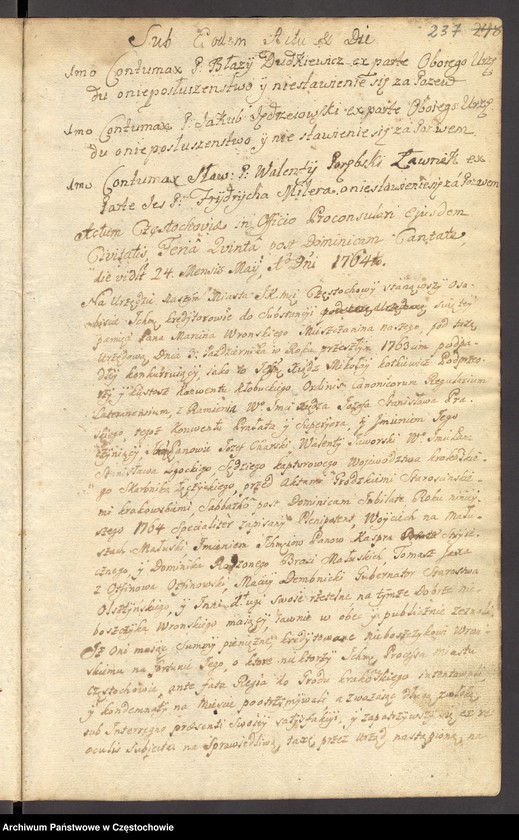 237 248
Sub Eodem Actu & Die
1mo Contumax P. Błazy Dudkiewicz ex parte Oboiego Urzę
du o nieposłuszenstwo y niestawienie się za Pozew
1mo Contumax P. Jakub Jędrzeiowski ex parte Oboiego Urzę
du o nieposłuszenstwo y nie stawienie się za Pozwem
1mo. Contumax Sław: P. Walenty Porębski Ławnik ex
Parte Jes P. Frydrycha Milera, o niestawienie się zá Pozwem
Actum Częstochoviæ in Officio Proconsulari Ejusdem
Civitatis, Feria Quinta post Dominicam Cantate,
die vidlt 24. Mensis Maij Ao Dni 1764to
Na Urzędzie naszym Miasta JK mci Częstochowy stanąwszy oso
biscie Ichmć kredytorowie do Substancyi swiętey
pamięci Pana Marcina Wronskiego Mieszczanina naszego, pod
Urzędową Dnia Pazdziernika w Roku przeszłym 1763im podpa
dłey konkurruiący iako to Xiądz Mikołay kotkowicz Podprzeo
rzy y Kustosz Konwentu kłobuckiego, Ordinis Canonicorum Regularium
Lateranensium, z Ramienia Wo Jmci Xiędza Jozefa Stanisława Pra
skiego, tegoz konwentu Prałata y Superyora, y Jmieniem Jego
czyniący, Panowie Jozef Charski Walenty Jaworski Wo Jmci Pana
Stanisława Sędziego kapturowego Woiewodztwa krakowskie
go Skarbnika przed Aktami Grodzkiemi Starosinskie
mi krakowskiemi Sabbatho post Dominicam Jubilate Roku ninieÿ
szego 1764 Specialiter zapisany Plenipotent, Woyciech na Mału
szach Małuski Jmieniem Ichmciow Panow Kaspra
cznego, y Dominika Rodzonego Braci Małuskich, Tomasz Jaxa
z Ossinowa Ossinowski, Maciey Dembnicki Gubernator Starostwa
Olsztynskiego, y Inni długi swoie rzetelne na tymze Dobrze nie
boszczyka Wronskiego maiący Jawnie w obec y publicznie zeznali
Jz Oni maiąc Summy pieniężne kredytowane nieboszczykowi Wron
skiemu na Fortunie Jego, o ktore niektorzy Ichmć Processa miastu
Częstochowie, ante fata Ejusdem do Grodu krakowskiego intentowali
y kondemnaty na Mieście pootrzymywali a zwazaiąc długą zwłokę
sub Interregno præsenti swoiey satysfakcyi, y zapatrzywszy się ex re
oculis subjecta, na Sprawiedliwą taxę, przez Urząd nastąpioną, na
Archiwum Państwowe w Częstochowie